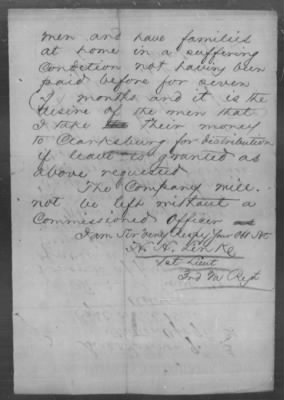 men and have families
at home in a suffering
Condition not having been
paid before for seven
(7) months and it is the
desire of the men that
I take their money
to Clarksburg for distribution
if leave is granted as
above requested
The Company will
not be left without a
Commissioned Officer
I am Sir very Respy Your Obt Svt
1st Lieut
3rd Va Regt